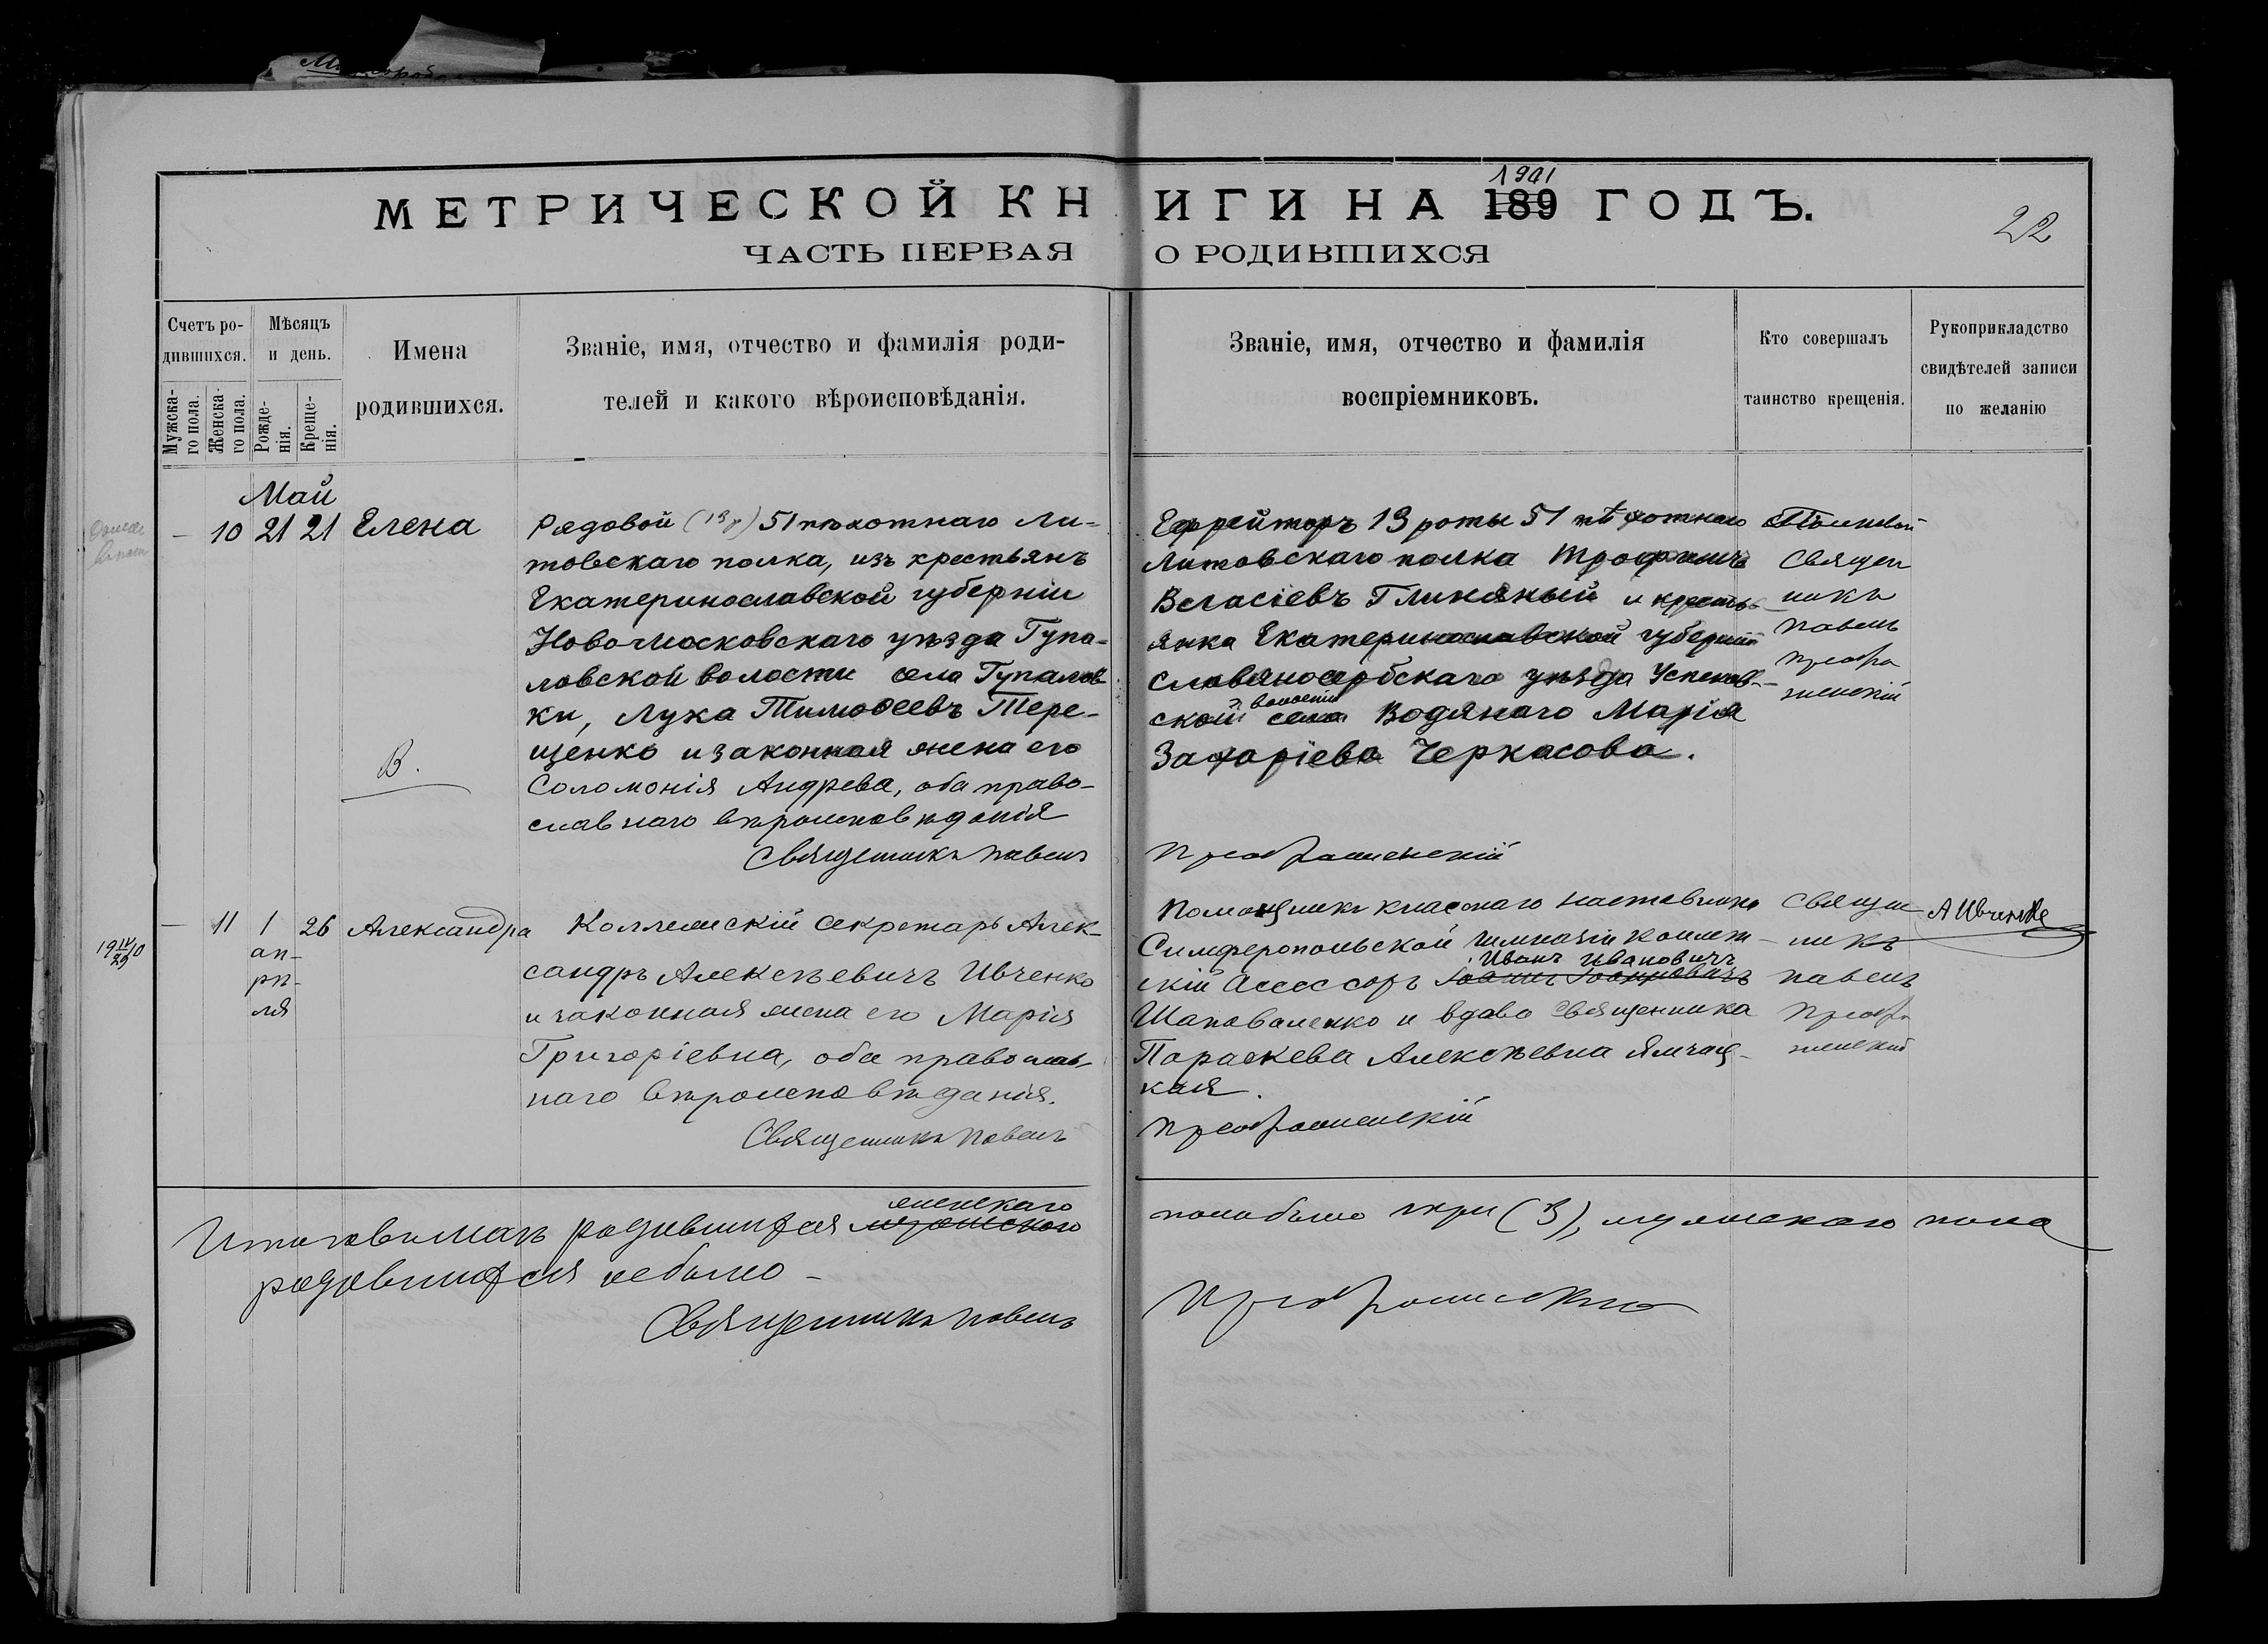 МЕТРИЧЕСКОЙ КНИГИ НА 189 1901 ГОДЪ.
22
ЧАСТЬ ПЕРВАЯ О РОДИВШИХСЯ
Счетъ ро-
дившихся.
Мужска-
го пола.
Женска-
го пола.
Мѣсяцъ
и день.
Рожде-
нія.
Креще-
нія.
Имена
родившихся.
Званіе, имя, отчество и фамилія роди-
телей и какого вѣроисповѣданія.
Званіе, имя, отчество и фамилія
воспріемниковъ.
Кто совершалъ
таинство крещенія.
Рукоприкладство
свидѣтелей записи
по желанію
Май
— 10 21 21 Елена
В.
Рядовой (13 р) 51 пѣхотнаго Ли-
товскаго полка, изъ крестьянъ
Екатеринославской губерніи
Новомосковскаго уѣзда Гупа-
ловской волости села Гупалов
ки, Лука Тимоѳеевъ Тере-
щенко и законная жена его
Соломонія Андрева, оба право-
славнаго вѣроисповѣданія
Священникъ Павелъ
Ефрейторъ 13 роты 51 пѣхотнаго
Литовскаго полка Трофимъ
Власіевъ Глиняный и кресть-
янка Екатеринославской губерніи
Славяносербскаго уѣзда Успенов-
волости
ской села Водянаго Марія
Захаріева Черкасова.
Преображенскій
Полковой
Священ
никъ
Павелъ
Преобра
женскій
19 IV/29 10
— 11 1 26 Александра
ап-
рѣ-
ля
Коллежскій Секретарь Алек-
сандръ Алексѣевичъ Ивченко
и законная жена его Марія
Григоріевна, оба православ-
наго вѣроисповѣданія.
Священникъ Павелъ
Помощникъ класснаго наставника
Симферопольской гимназіи Коллеж-
Иванъ Ивановичъ
скій Асессоръ Іоаннъ Іоанновичъ
Шаповаленко и вдова Священника
Параскева Алексѣевна Ямчац-
кая.
Преображенскій
Священ
никъ
Павелъ
Преобра
женскій
А Ивченко
женскаго
Итого въ маѣ родившихся мужескаго пола было три (3), мужескаго пола
родившихся не было —
Священникъ Павелъ Преображенскій